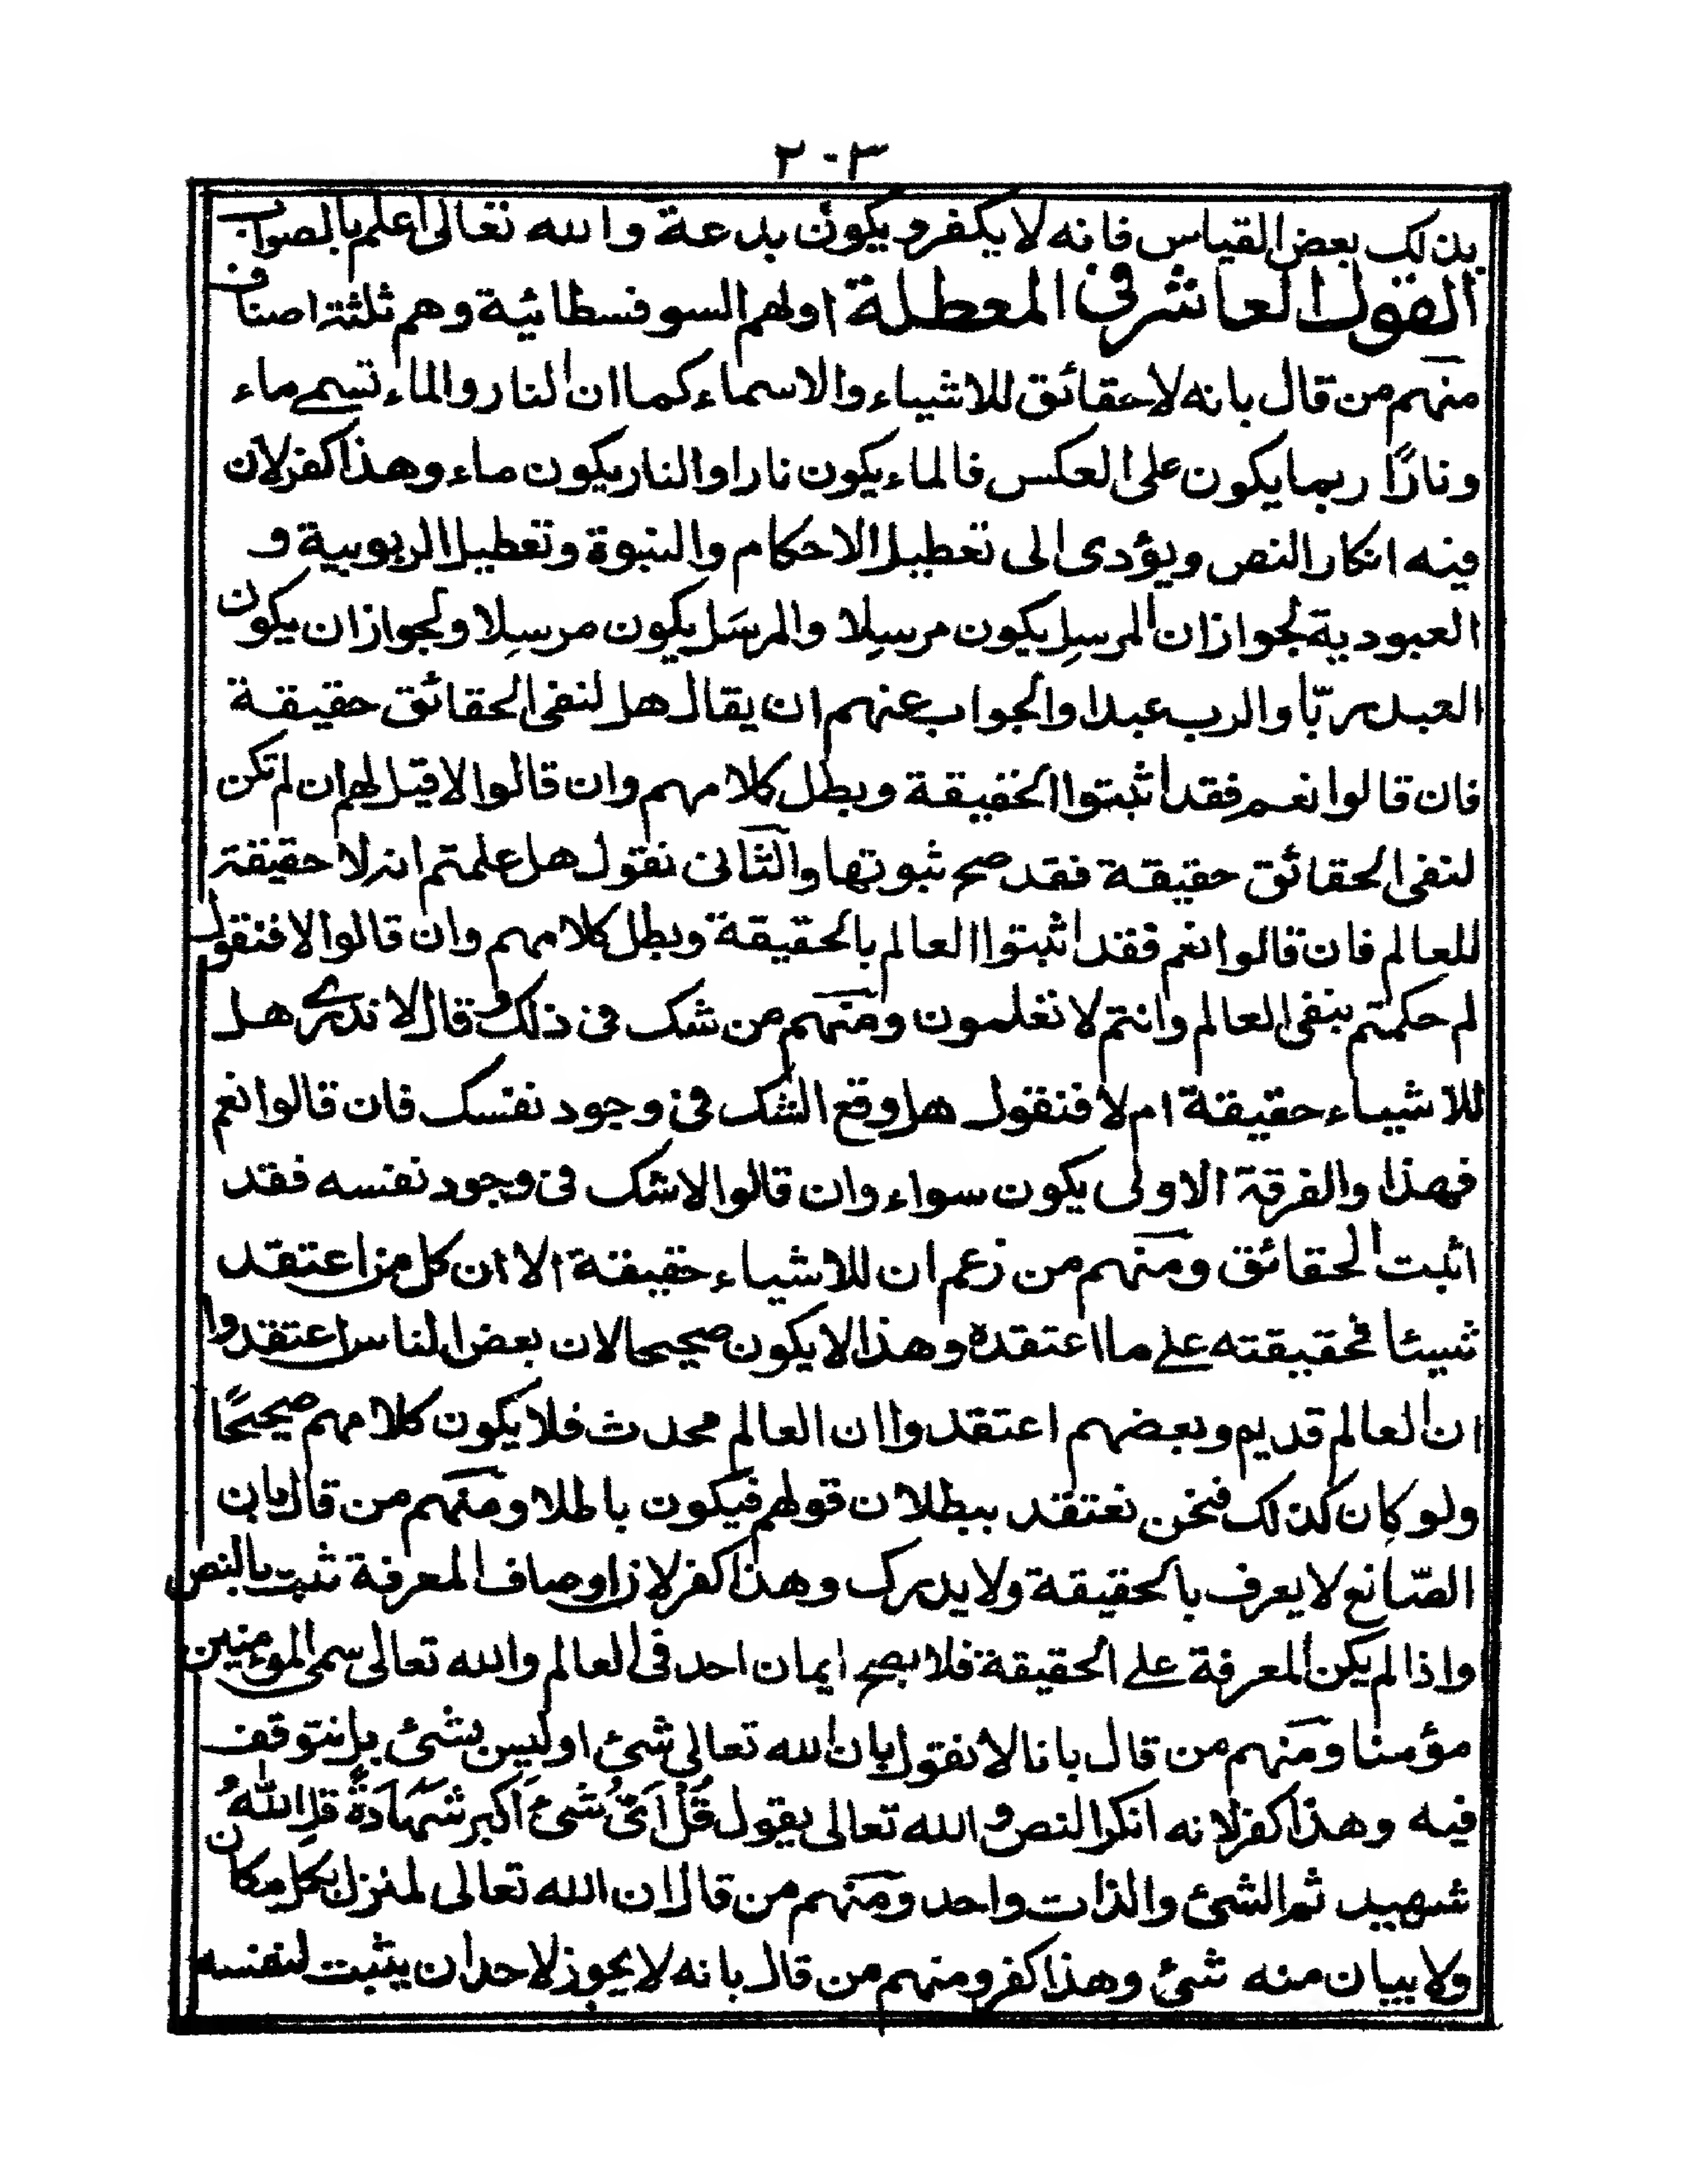 ٢٠٣
بذلك بعض القياس فانه لا يكفر و يكون بدعة والله تعالى اعلم بالصواب
القول العاشر في المعطلة اولهم السوفسطائية وهم ثلثة اصناف
منهم من قال بانه لا حقائق للاشياء والاسماء كما ان النار والماء تسمے ماء
ونارًا ربما يكون على العكس فالماء يكون نارا والنار يكون ماء وهذا كفر لان
فيه انكار النص ويؤدى الى تعطيل الاحكام والنبوة وتعطيل الربوبية و
العبودية لجواز ان المرسِل يكون مرسِلا والمرسَل يكون مرسِلا ولجواز ان يكون
العبد ربّا والرب عبدا والجواب عنهم ان يقال هل لنفى الحقائق حقيقة
فان قالوا نعم فقد اثبتوا الحقيقة وبطل كلامهم وان قالوا لا قيل لهم ان لم تكن
لنفى الحقائق حقيقة فقد صح ثبوتها والثانى نقول هل علمتم انه لا حقيقة
للعالم فان قالوا نعم فقد اثبتوا العالم بالحقيقة وبطل كلامهم وان قالوا لا فنقول
لم حكمتم بنفى العالم وانتم لا تعلمون ومنهم من شك فى ذلك وقال لا ندرے هل
للاشياء حقيقة ام لا فنقول هل وقع الشك فى وجود نفسك فان قالوا نعم
فهذا والفرقة الاولى يكون سواء وان قالوا لا شك فى وجود نفسه فقد
اثبت الحقائق ومنهم من زعم ان للاشياء حقيقة الا ان كل من اعتقد
شيئا فحقيقته علے ما اعتقده وهذا لا يكون صحيحا لان بعض الناس اعتقدوا
ان العالم قديم وبعضهم اعتقدوا ان العالم محدث فلا يكون كلامهم صحيحًا
ولو كان كذلك فنحن نعتقد ببطلان قولهم فيكون باطلا ومنهم من قال بان
الصّانع لا يعرف بالحقيقة ولا يدرك وهذا كفر لان اوصاف المعرفة ثبت بالنص
واذا لم يكن المعرفة علے الحقيقة فلا يصح ايمان احد فى العالم والله تعالى سمى المؤمنين
مؤمنا ومنهم من قال بانا لا نقول بان الله تعالى شئ او ليس بشئ بل نتوقف
فيه وهذا كفر لانه انكر النص والله تعالى يقول قُلْ اَىُّ شىْءٍ اَكبر شَهَادَةً قل اللهُ
شهيد ثم الشئ والذات واحد ومنهم من قال ان الله تعالى لمنزل بكل مكان
ولا يبان منه شئ وهذا كفر ومنهم من قال بانه لا يجوز لاحد ان يثبت لنفسه